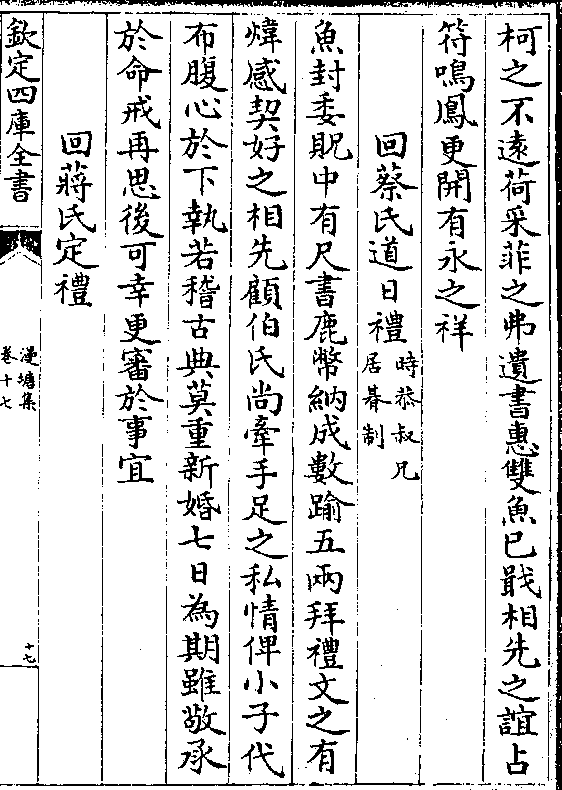 柯之不遠荷采菲之弗遺書惠雙魚已戢相先之誼占
符鳴鳳更開有永之祥
回蔡氏道日禮時恭叔兄居朞制
魚封委貺中有尺書鹿幣納成數踰五兩拜禮文之有
煒感契好之相先顧伯氏尚牽手足之私情俾小子代
布腹心於下執若稽古典莫重新婚七日為期雖敬承
於命戒再思後可幸更審於事宜
回蔣氏定禮
欽定四庫全書
漫塘集
卷十七
十七